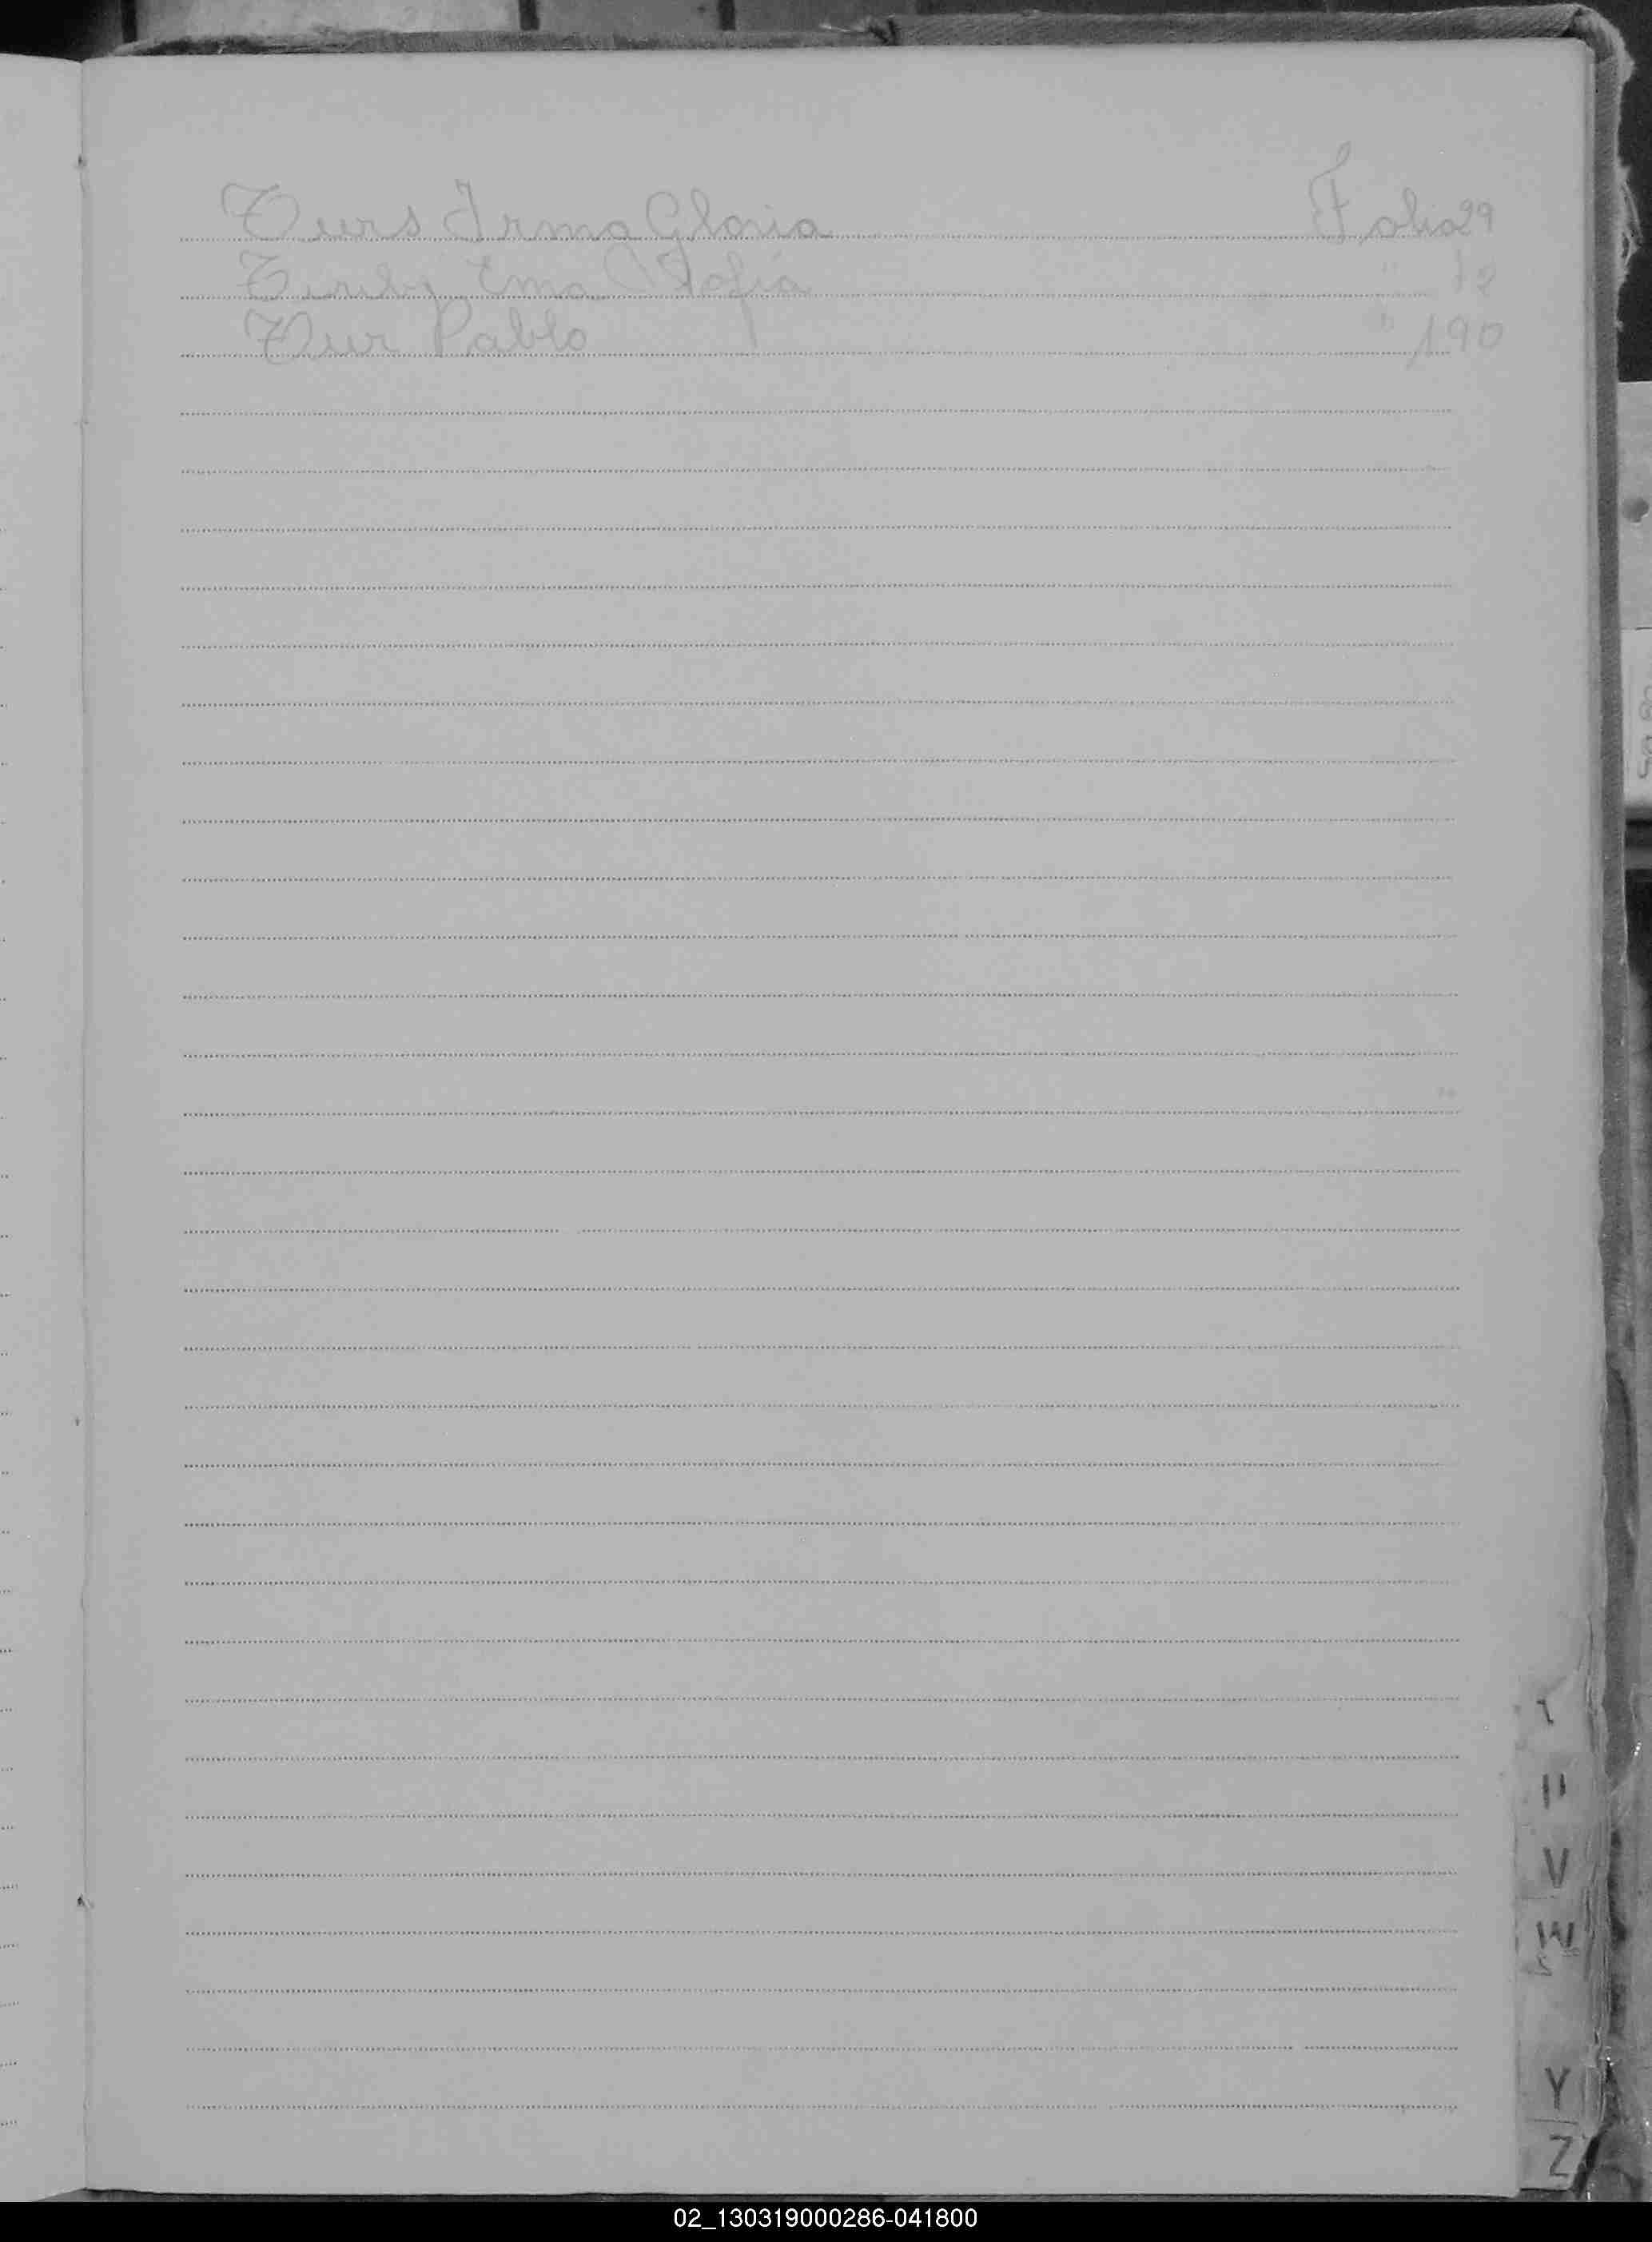 Turs Irma Gloria Folio 29
Ema Sofia " 12
Tur Pablo " 190
U
V
W
Y
Z
02_130319000286-041800